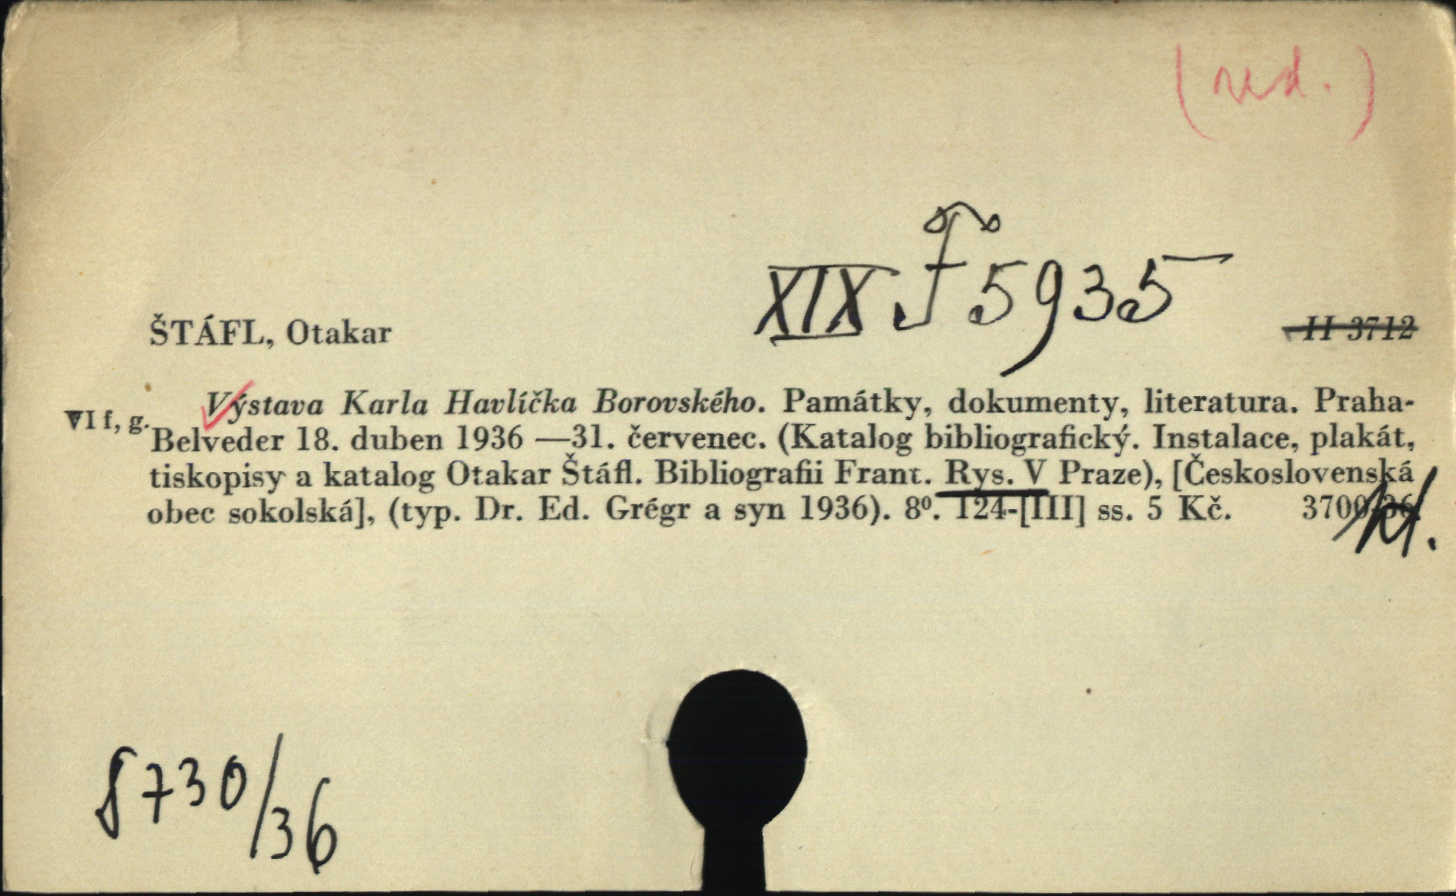 (red.)
XIX F 5935
ŠTÁFL, Otakar
II 3712
Výstava Karla Havlíčka Borovského. Památky, dokumenty, literatura. Praha-
VI f, g.
Belveder 18. duben 1936 —31. červenec. (Katalog bibliografický. Instalace, plakát,
tiskopisy a katalog Otakar Štáfl. Bibliografii Frant. Rys. V Praze), [Československá
obec sokolská], (typ. Dr. Ed. Grégr a syn 1936). 8⁰. 124-[III] ss. 5 Kč. 3700-36
8730/36